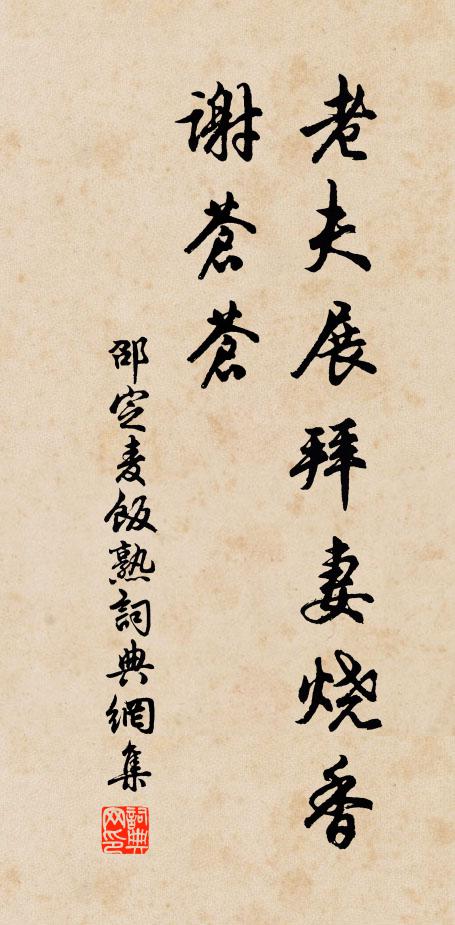 老夫展拜妻烧香
谢苍苍
邵定麦飯熟詞典網集
詞典网印